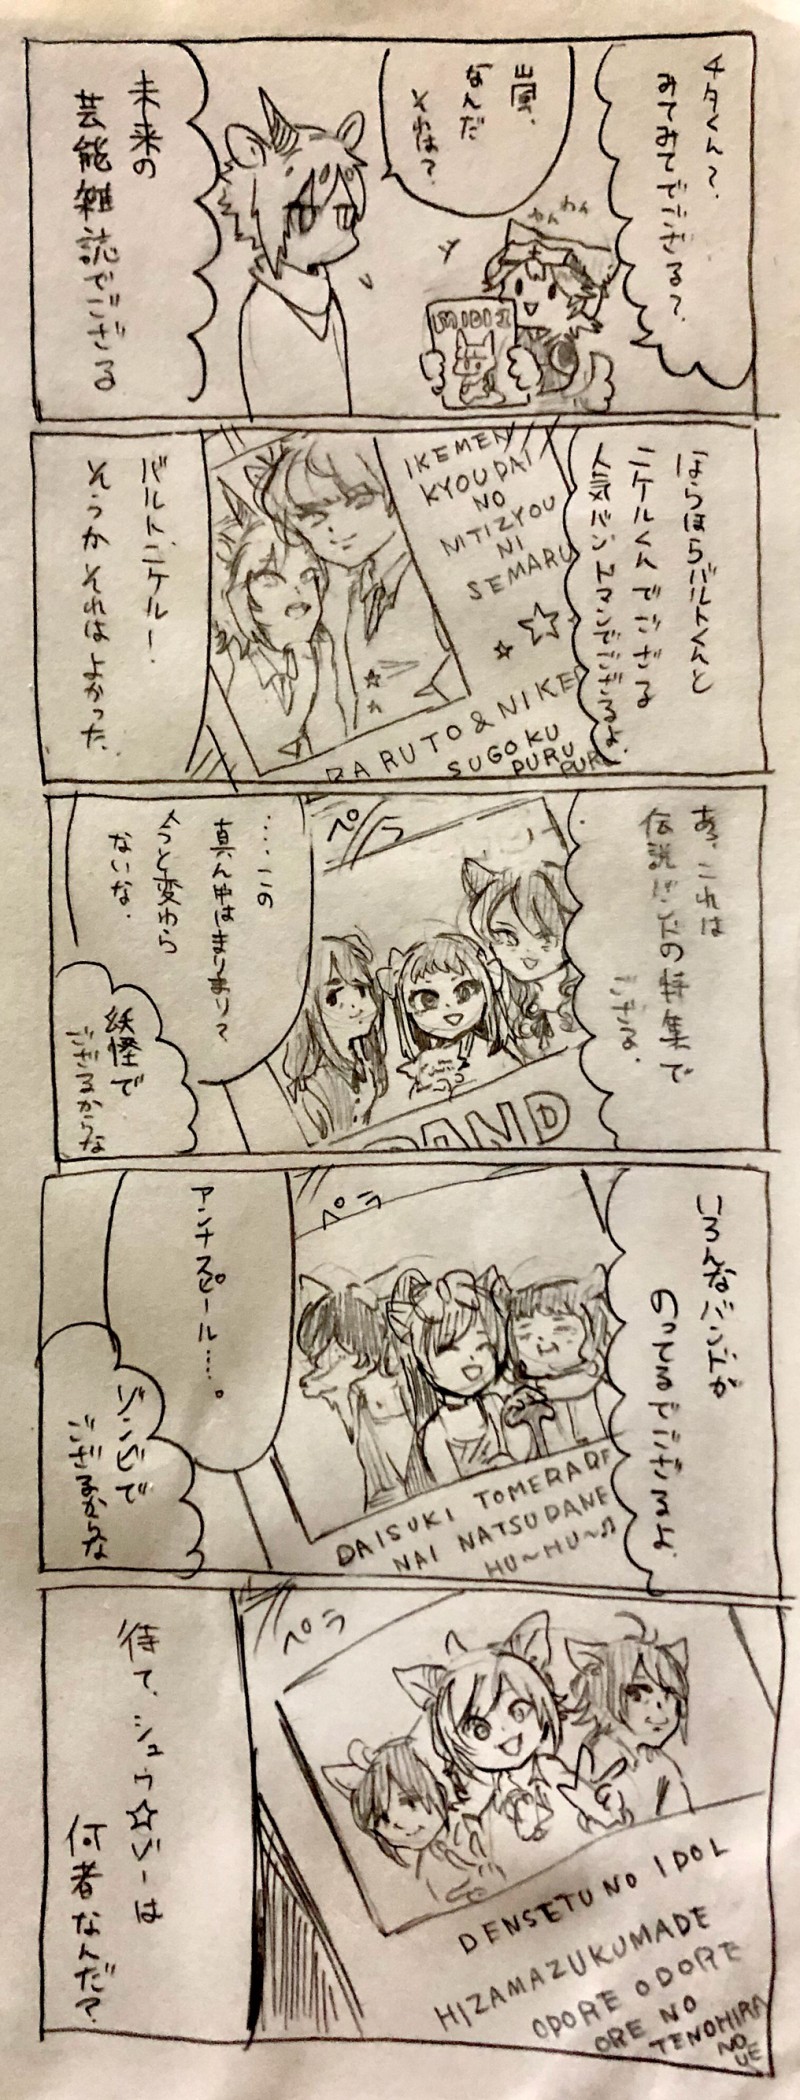 チタくん？
みてみてでござる？
嵐、
なんだ
それは？
わんわん
未来の
芸能雑誌でござる
MIDI
ほらほらバルトくんと
ニケルくんでござる
人気バンドマンでござるよ。
IKEMEN
KYOUDAI
NO
NITIZYOU
NI
SEMARU
BARUTO & NIKE
SUGOKU
PURU
PURU
バルト、ニケル！
そうかそれはよかった。
あ、これは
伝説バンドの特集で
ござる。
ペラ
BAND
……この
真ん中はまりまり？
今と変わら
ないな。
妖怪で
ござるからな
いろんなバンドが
のってるでござるよ。
ペラ
DAISUKI TOMERARE
NAI NATSU DANE
HU〜HU〜♫
アンナスピール……。
ゾンビで
ござるからな
ペラ
DENSETU NO IDOL
HIZAMAZUKUMADE
ODORE ODORE
ORE NO
TENOHIRA
NO
UE
待て、シュウ☆ゾーは
何者なんだ？